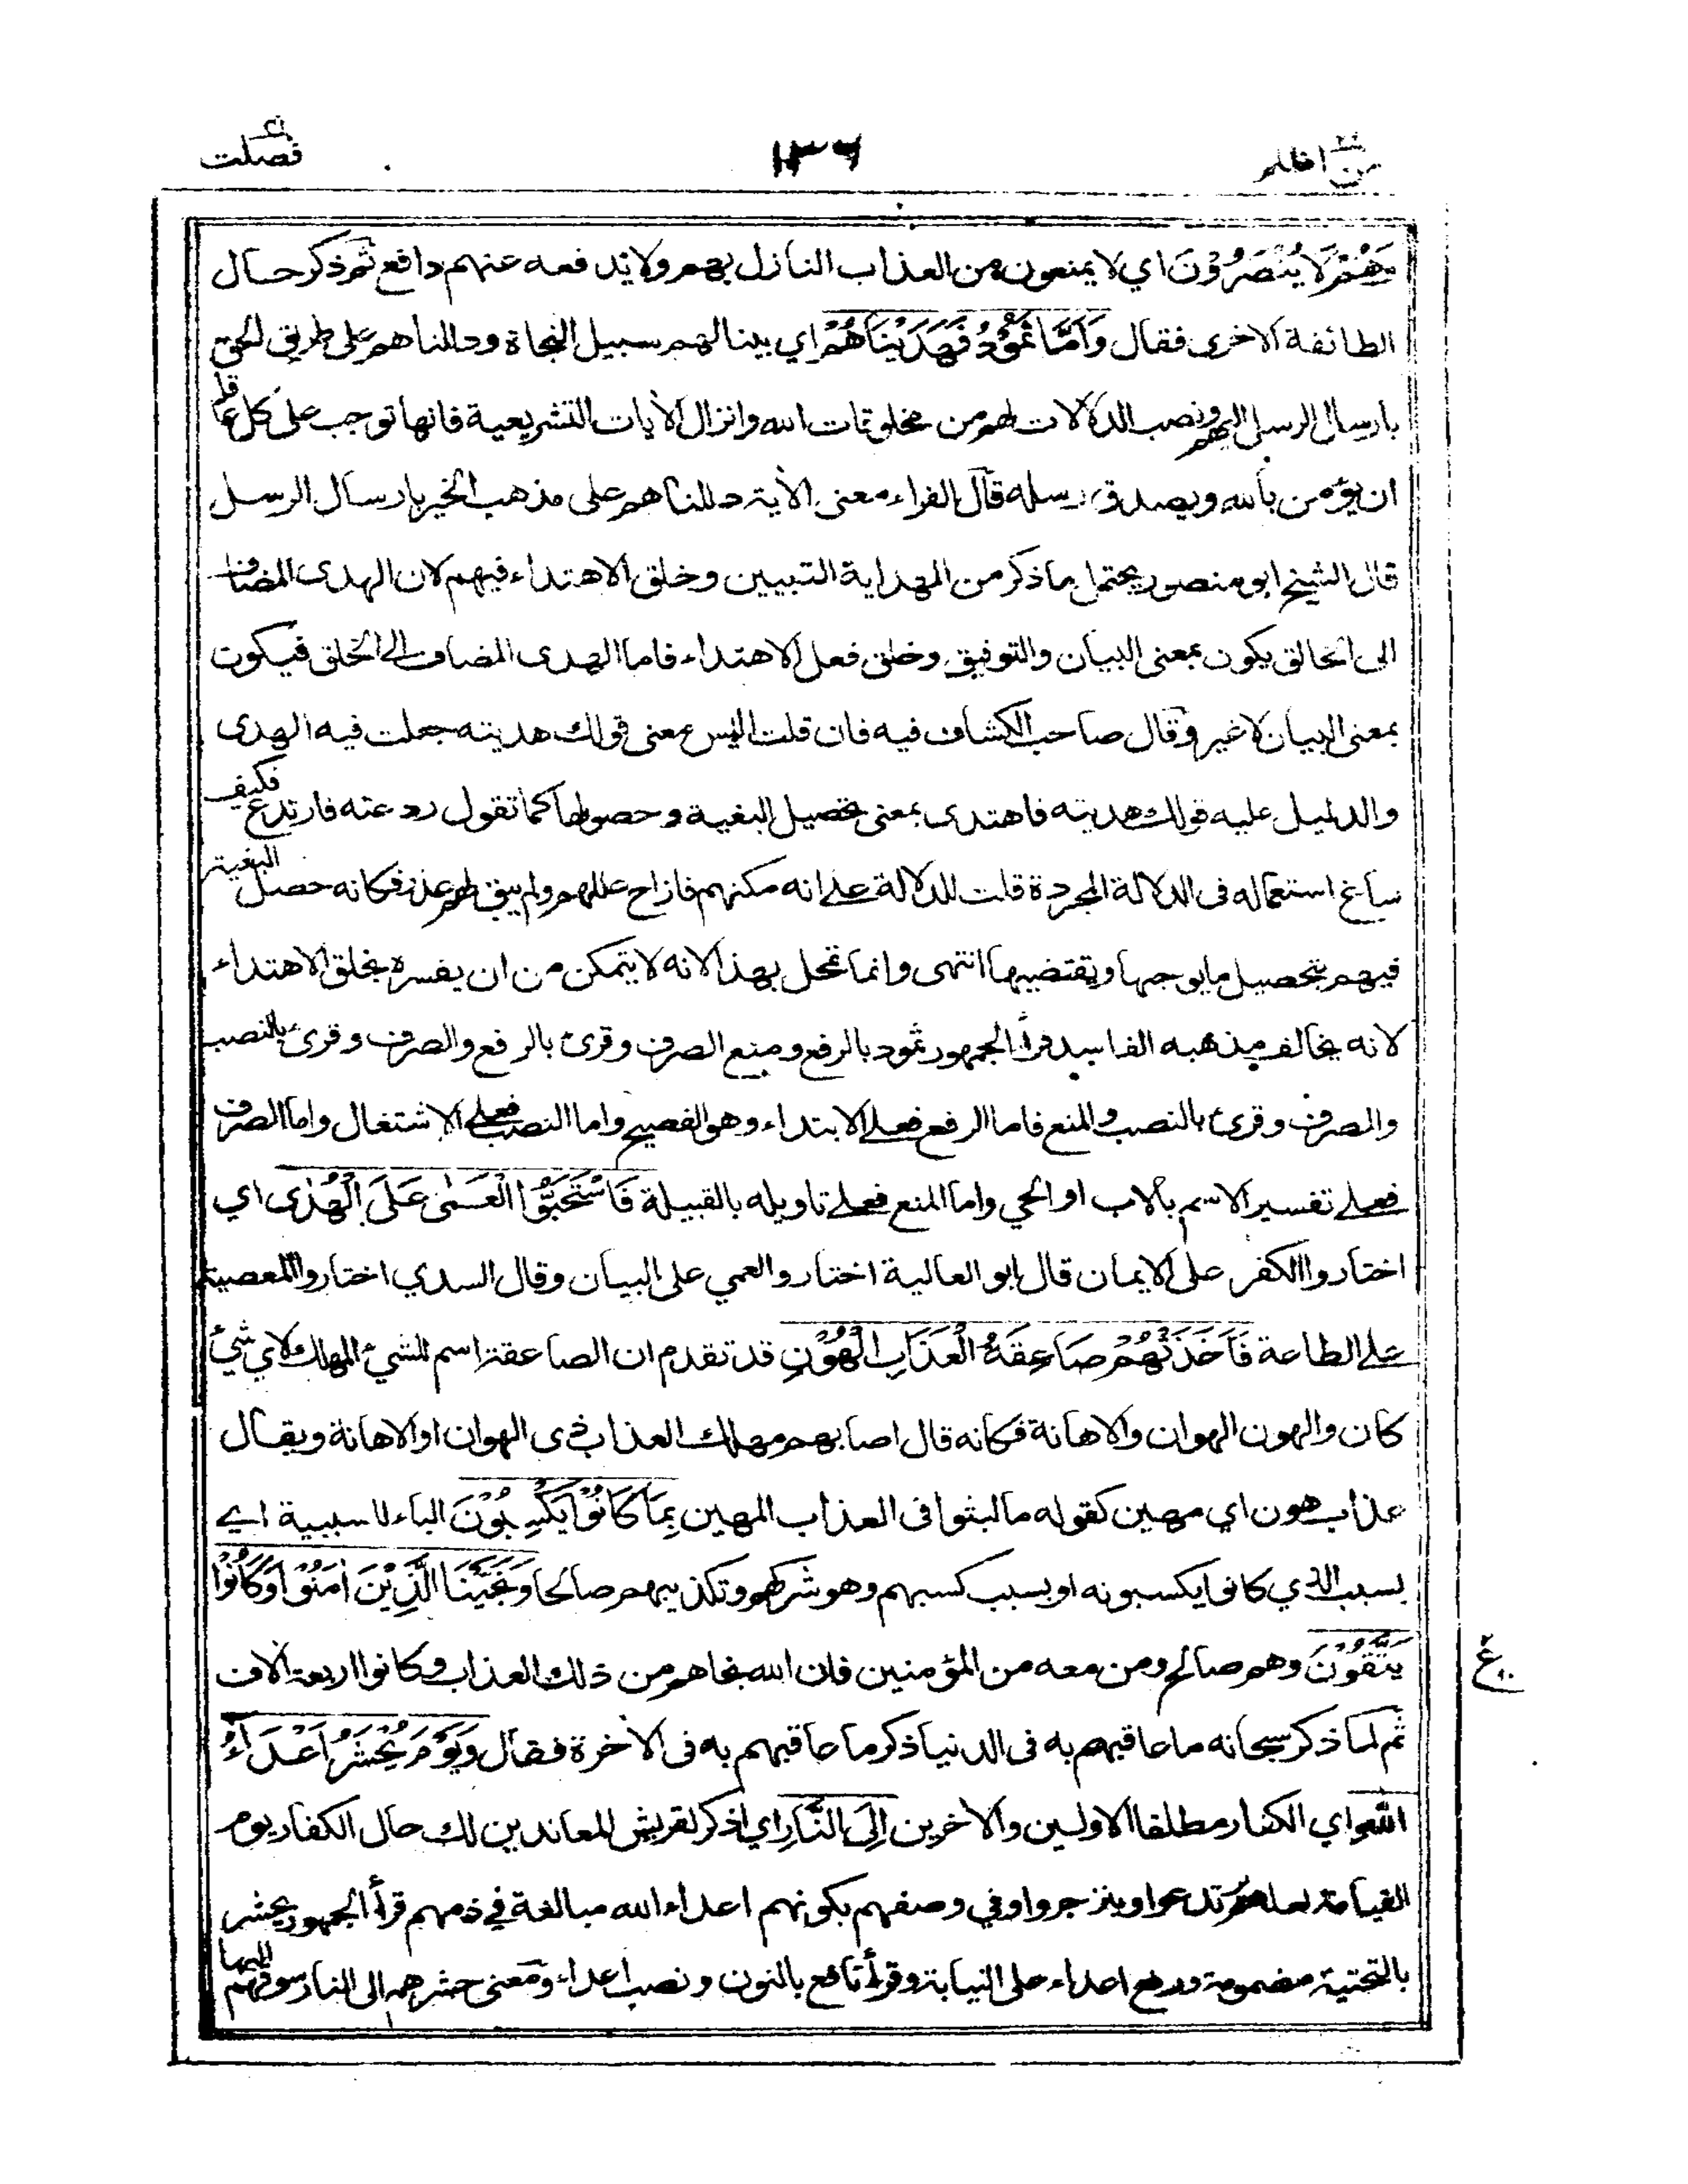 فمن اظلم ١٣٦ فصلت
وَهُمْ لَا يُنْصَرُوْنَ اي لا يمنعون من العذاب النازل بهم ولا يدفعه عنهم دافع ثم ذكر حال
الطائفة الاخرى فقال وَاَمَّا ثَمُوْدُ فَهَدَيْنَاهُمْ اي بينا لهم سبيل النجاة ودللناهم على طريق الحق
بارسال الرسل اليهم ونصب الدلالات لهم من مخلوقات الله وانزال الآيات التشريعية فانها توجب على كل عاقل
ان يؤمن بالله ويصدق رسله قال الفراء معنى الآية دللناهم على مذهب الخير بارسال الرسل
قال الشيخ ابو منصور يحتمل ما ذكر من الهداية التبيين وخلق الاهتداء فيهم لان الهدى المضاف
الى الخالق يكون بمعنى البيان والتوفيق وخلق فعل الاهتداء فاما الهدى المضاف الى الخلق فيكون
بمعنى البيان لا غير وقال صاحب الكشاف فيه فان قلت اليس معنى قولك هديته جعلت فيه الهدى
والدليل عليه قولك هديته فاهتدى بمعنى تحصيل البغية وحصولها كما تقول ردعته فارتدع فكيف
ساغ استعماله في الدلالة المجردة قلت للدلالة على انه مكنهم فازاح عللهم ولم يبق لهم عذر فكانه حصل البغية
فيهم بتحصيل ما يوجبها ويقتضيها انتهى وانما تمحل بهذا لانه لا يتمكن من ان يفسره بخلق الاهتداء
لانه يخالف مذهبه الفاسد قرأ الجمهور ثمود بالرفع ومنع الصرف وقرئ بالرفع والصرف وقرئ بالنصب
والصرف وقرئ بالنصب والمنع فاما الرفع فعلى الابتداء وهو الفصيح واما النصب فعلى الاشتغال واما الصرف
فعلى تفسير الاسم بالاب او الحي واما المنع فعلى تاويله بالقبيلة فَاسْتَحَبُّوا الْعَمٰى عَلَى الْهُدٰى اي
اختاروا الكفر على الايمان قال ابو العالية اختاروا العمي على البيان وقال السدي اختاروا المعصية
على الطاعة فَاَخَذَتْهُمْ صَاعِقَةُ الْعَذَابِ الْهُوْنِ قد تقدم ان الصاعقة اسم للشيء المهلك لاي شيء
كان والهون الهوان والاهانة فكانه قال اصابهم مهلك العذاب ذى الهوان او الاهانة ويقال
عذاب هون اي مهين كقوله ما لبثوا في العذاب المهين بِمَا كَانُوْا يَكْسِبُوْنَ الباء للسببية اي
بسبب الذي كانوا يكسبونه او بسبب كسبهم وهو شركهم وتكذيبهم صالحا وَنَجَّيْنَا الَّذِيْنَ اٰمَنُوْا وَكَانُوْا
يَتَّقُوْنَ وهم صالح ومن معه من المؤمنين فان الله نجاهم من ذلك العذاب وكانوا اربعة آلاف
ثم لما ذكر سبحانه ما عاقبهم به في الدنيا ذكر ما عاقبهم به في الآخرة فقال وَيَوْمَ يُحْشَرُ اَعْدَآءُ
اللهِ اي الكفار مطلقا الاولين والآخرين اِلَى النَّارِ اي اذكر لقريش المعاندين لك حال الكفار يوم
القيامة لعلهم يرتدعوا وينزجروا وفي وصفهم بكونهم اعداء الله مبالغة في ذمهم قرأ الجمهور يحشر
بالتحتية مضمومة ورفع اعداء على النيابة وقرأ نافع بالنون ونصب اعداء ومعنى حشرهم الى النار سوقهم اليها